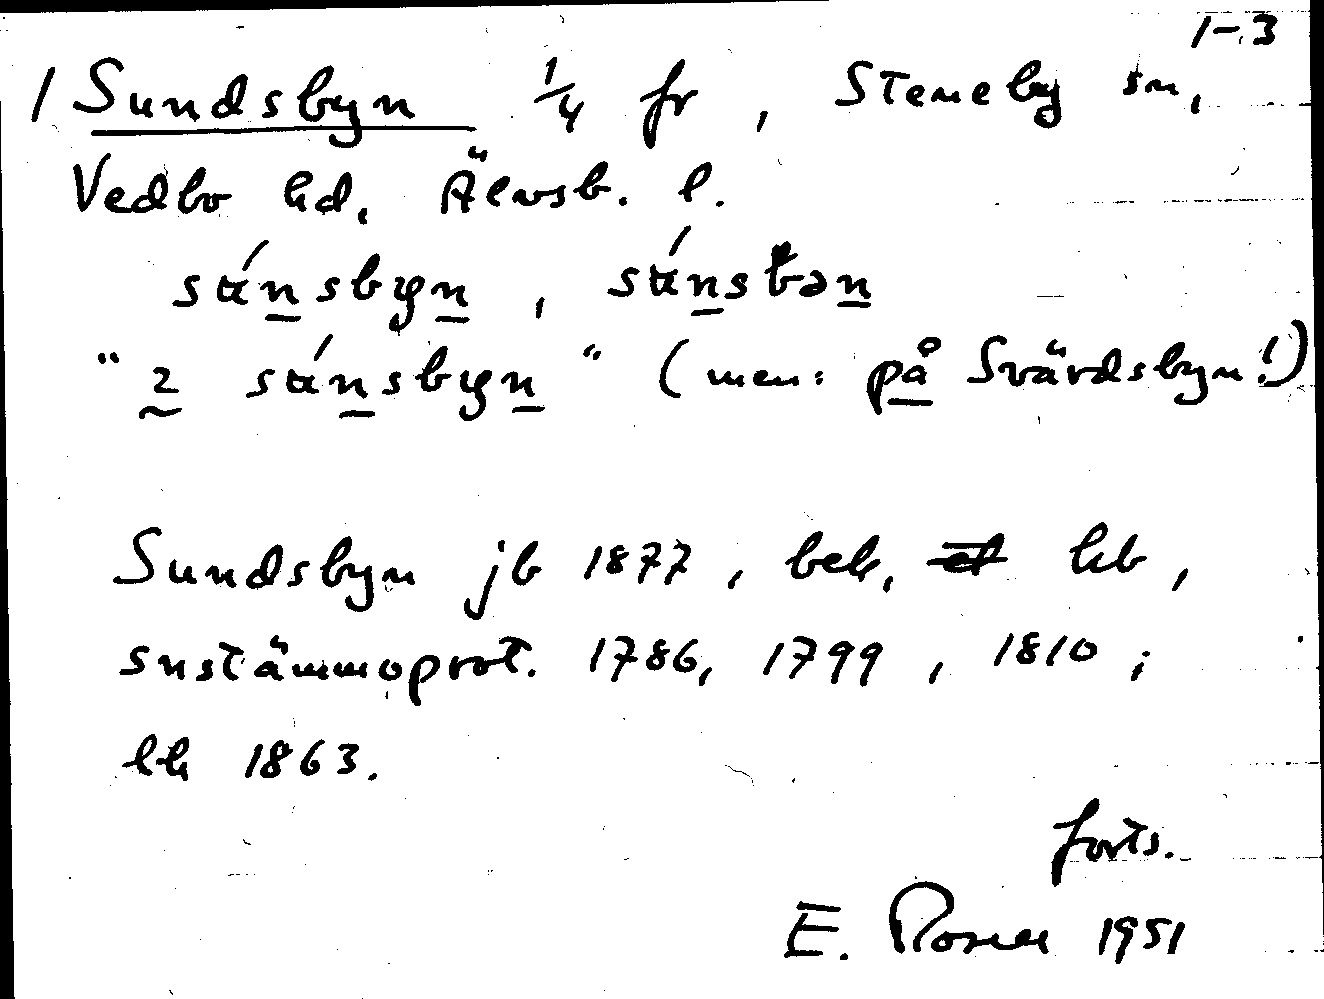 1-3
1 Sundsbyn 1/4 fr, Steneby sn,
Vedbo hd, Älvsb. l.
sú̵nsbyn, sú̵nsbən
"2 sú̵nsbyn" (men: på Svärdsbyn!)
Sundsbyn jb 1877, bek, hb,
snstämmoprot. 1786, 1799, 1810;
lh 1863.
forts.
E. 1951